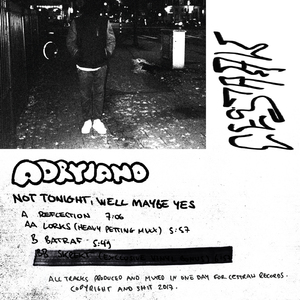 ADRYIANO
NOT TONIGHT, WELL MAYBE YES
A REFLECTION 7:06
AA LORKS (HEAVY PETTING MIX) 5:57
B BATRAF 5:49
BB
ALL TRACKS PRODUCED AND MIXED IN ONE DAY FOR RECORDS.
COPYRIGHT AND SHIT 2017.